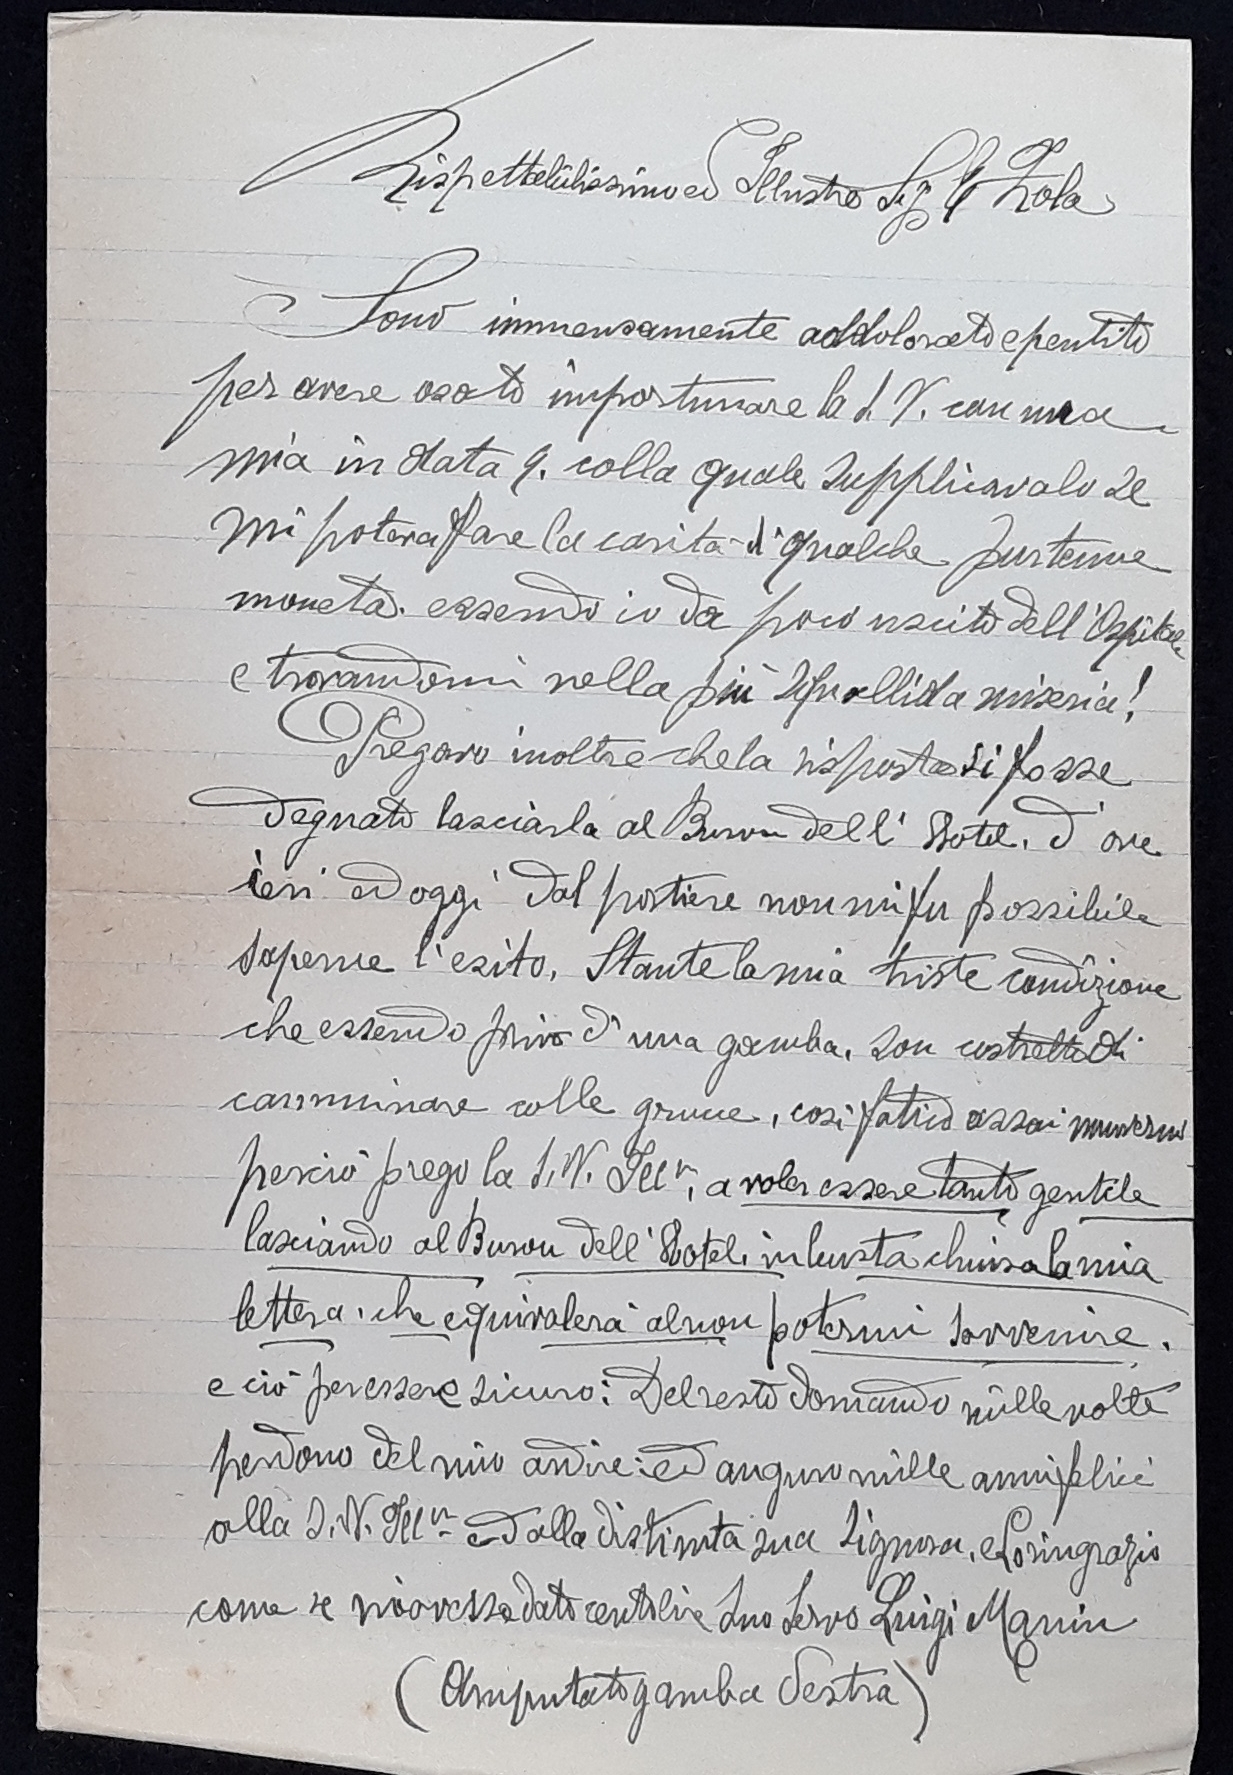 Rispettabilissimo ed Illustre Sig. E Zola
Sono immensamente addolorato e pentito
per avere osato importunare la S. V. con una
mia in data 9. colla quale supplicavalo se
mi poteva fare la carità di qualche pur tenue
moneta. essendo io da poco uscito dell'Ospitale
e trovandomi nella più squallida miseria!
Pregavo inoltre che la risposta si fosse
degnato lasciarla al Burou dell'Hotel. d'ove
ieri ed oggi dal portiere non mi fu possibile
saperne l'esito. Stante la mia triste condizione
che essendo privo d'una gamba. son costretto di
camminare colle grucce, così fatico assai
perciò prego la S. V. Ill.ma a voler essere tanto gentile
lasciando al Burou dell'Hotel. in busta chiusa la mia
lettera. che equivalerà al non potermi sovvenire.
e ciò per essere sicuro: Del resto domando mille volte
perdono del mio ardire: ed auguro mille anni felici
alla S. V. Ill.ma ed alla distinta sua Signora. e Lo ringrazio
come se mi avesse dato cento lire Suo Servo Luigi Manin
(Amputato gamba destra)